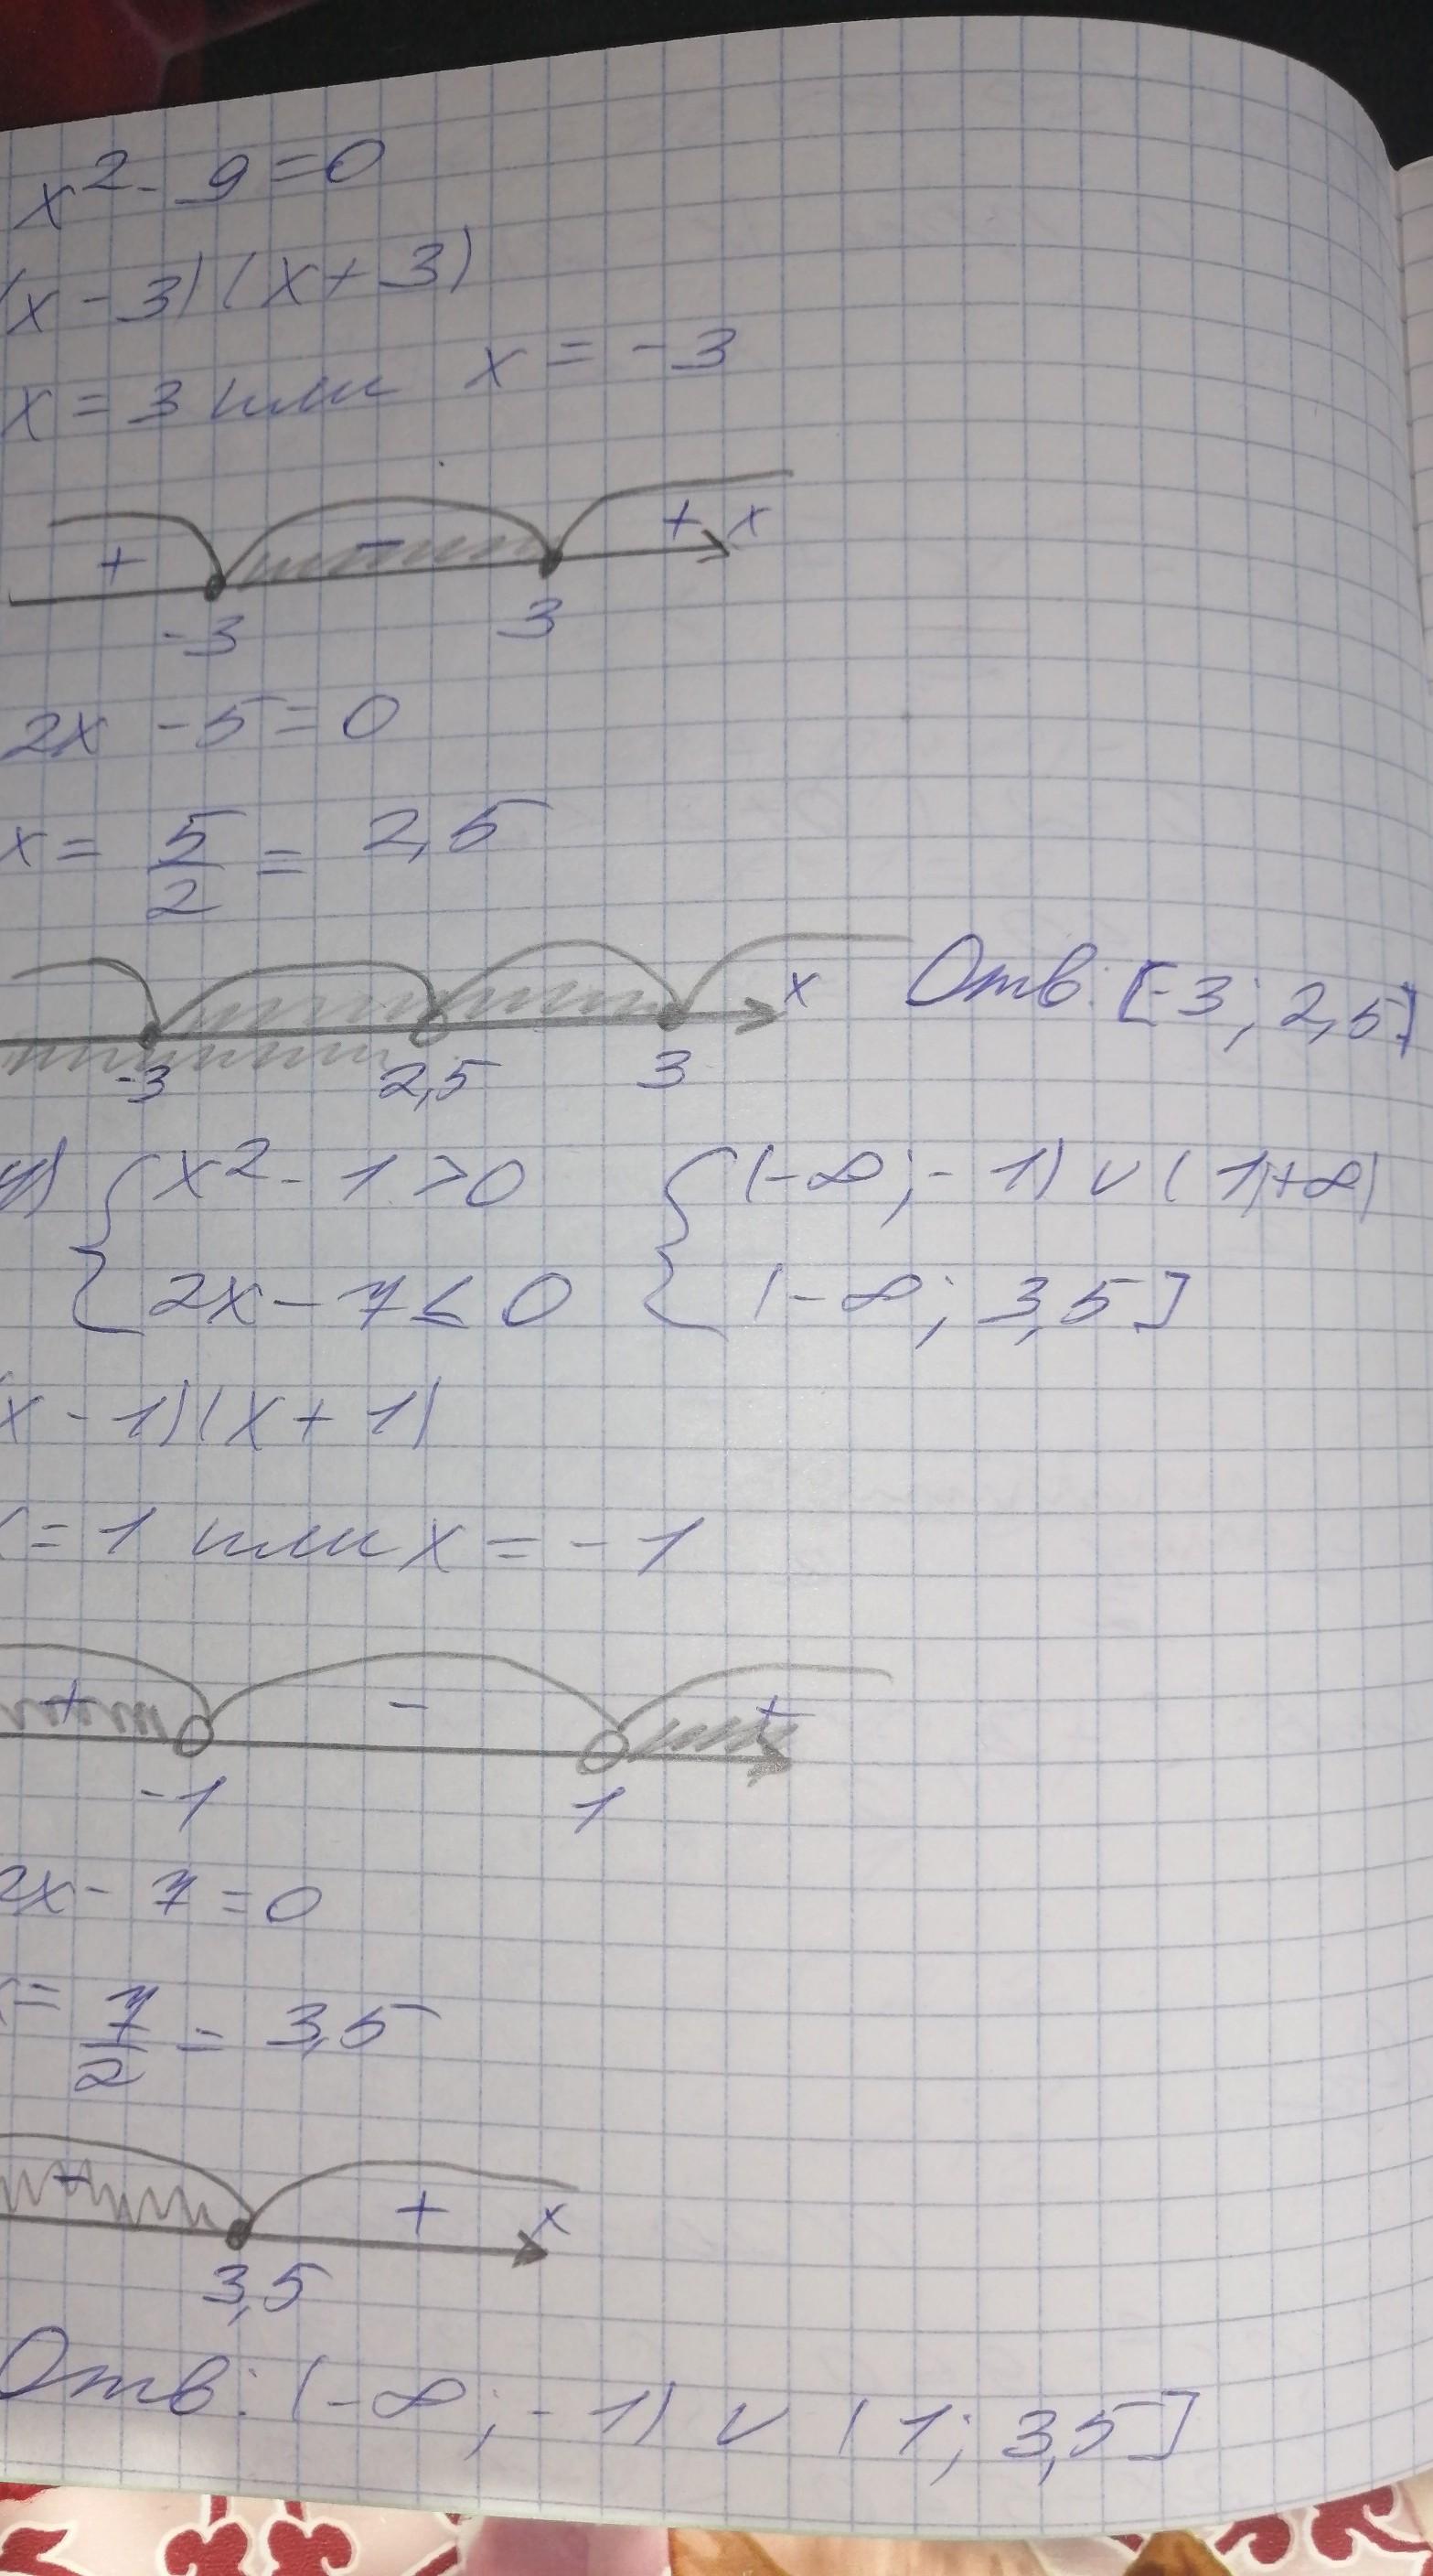 x² - 9 = 0
(x - 3)(x + 3)
x = 3 или x = -3
+ - + x
-3 3
2x - 5 = 0
x = 5/2 = 2,5
x Отв: [-3; 2,5]
-3 2,5 3
{ x² - 1 > 0 { (-∞; -1) ∪ (1; +∞)
2x - 7 ≤ 0 (-∞; 3,5]
(x - 1)(x + 1)
x = 1 или x = -1
+ - +
-1 1
2x - 7 = 0
x = 7/2 = 3,5
- + x
3,5
Отв: (-∞; -1) ∪ (1; 3,5]